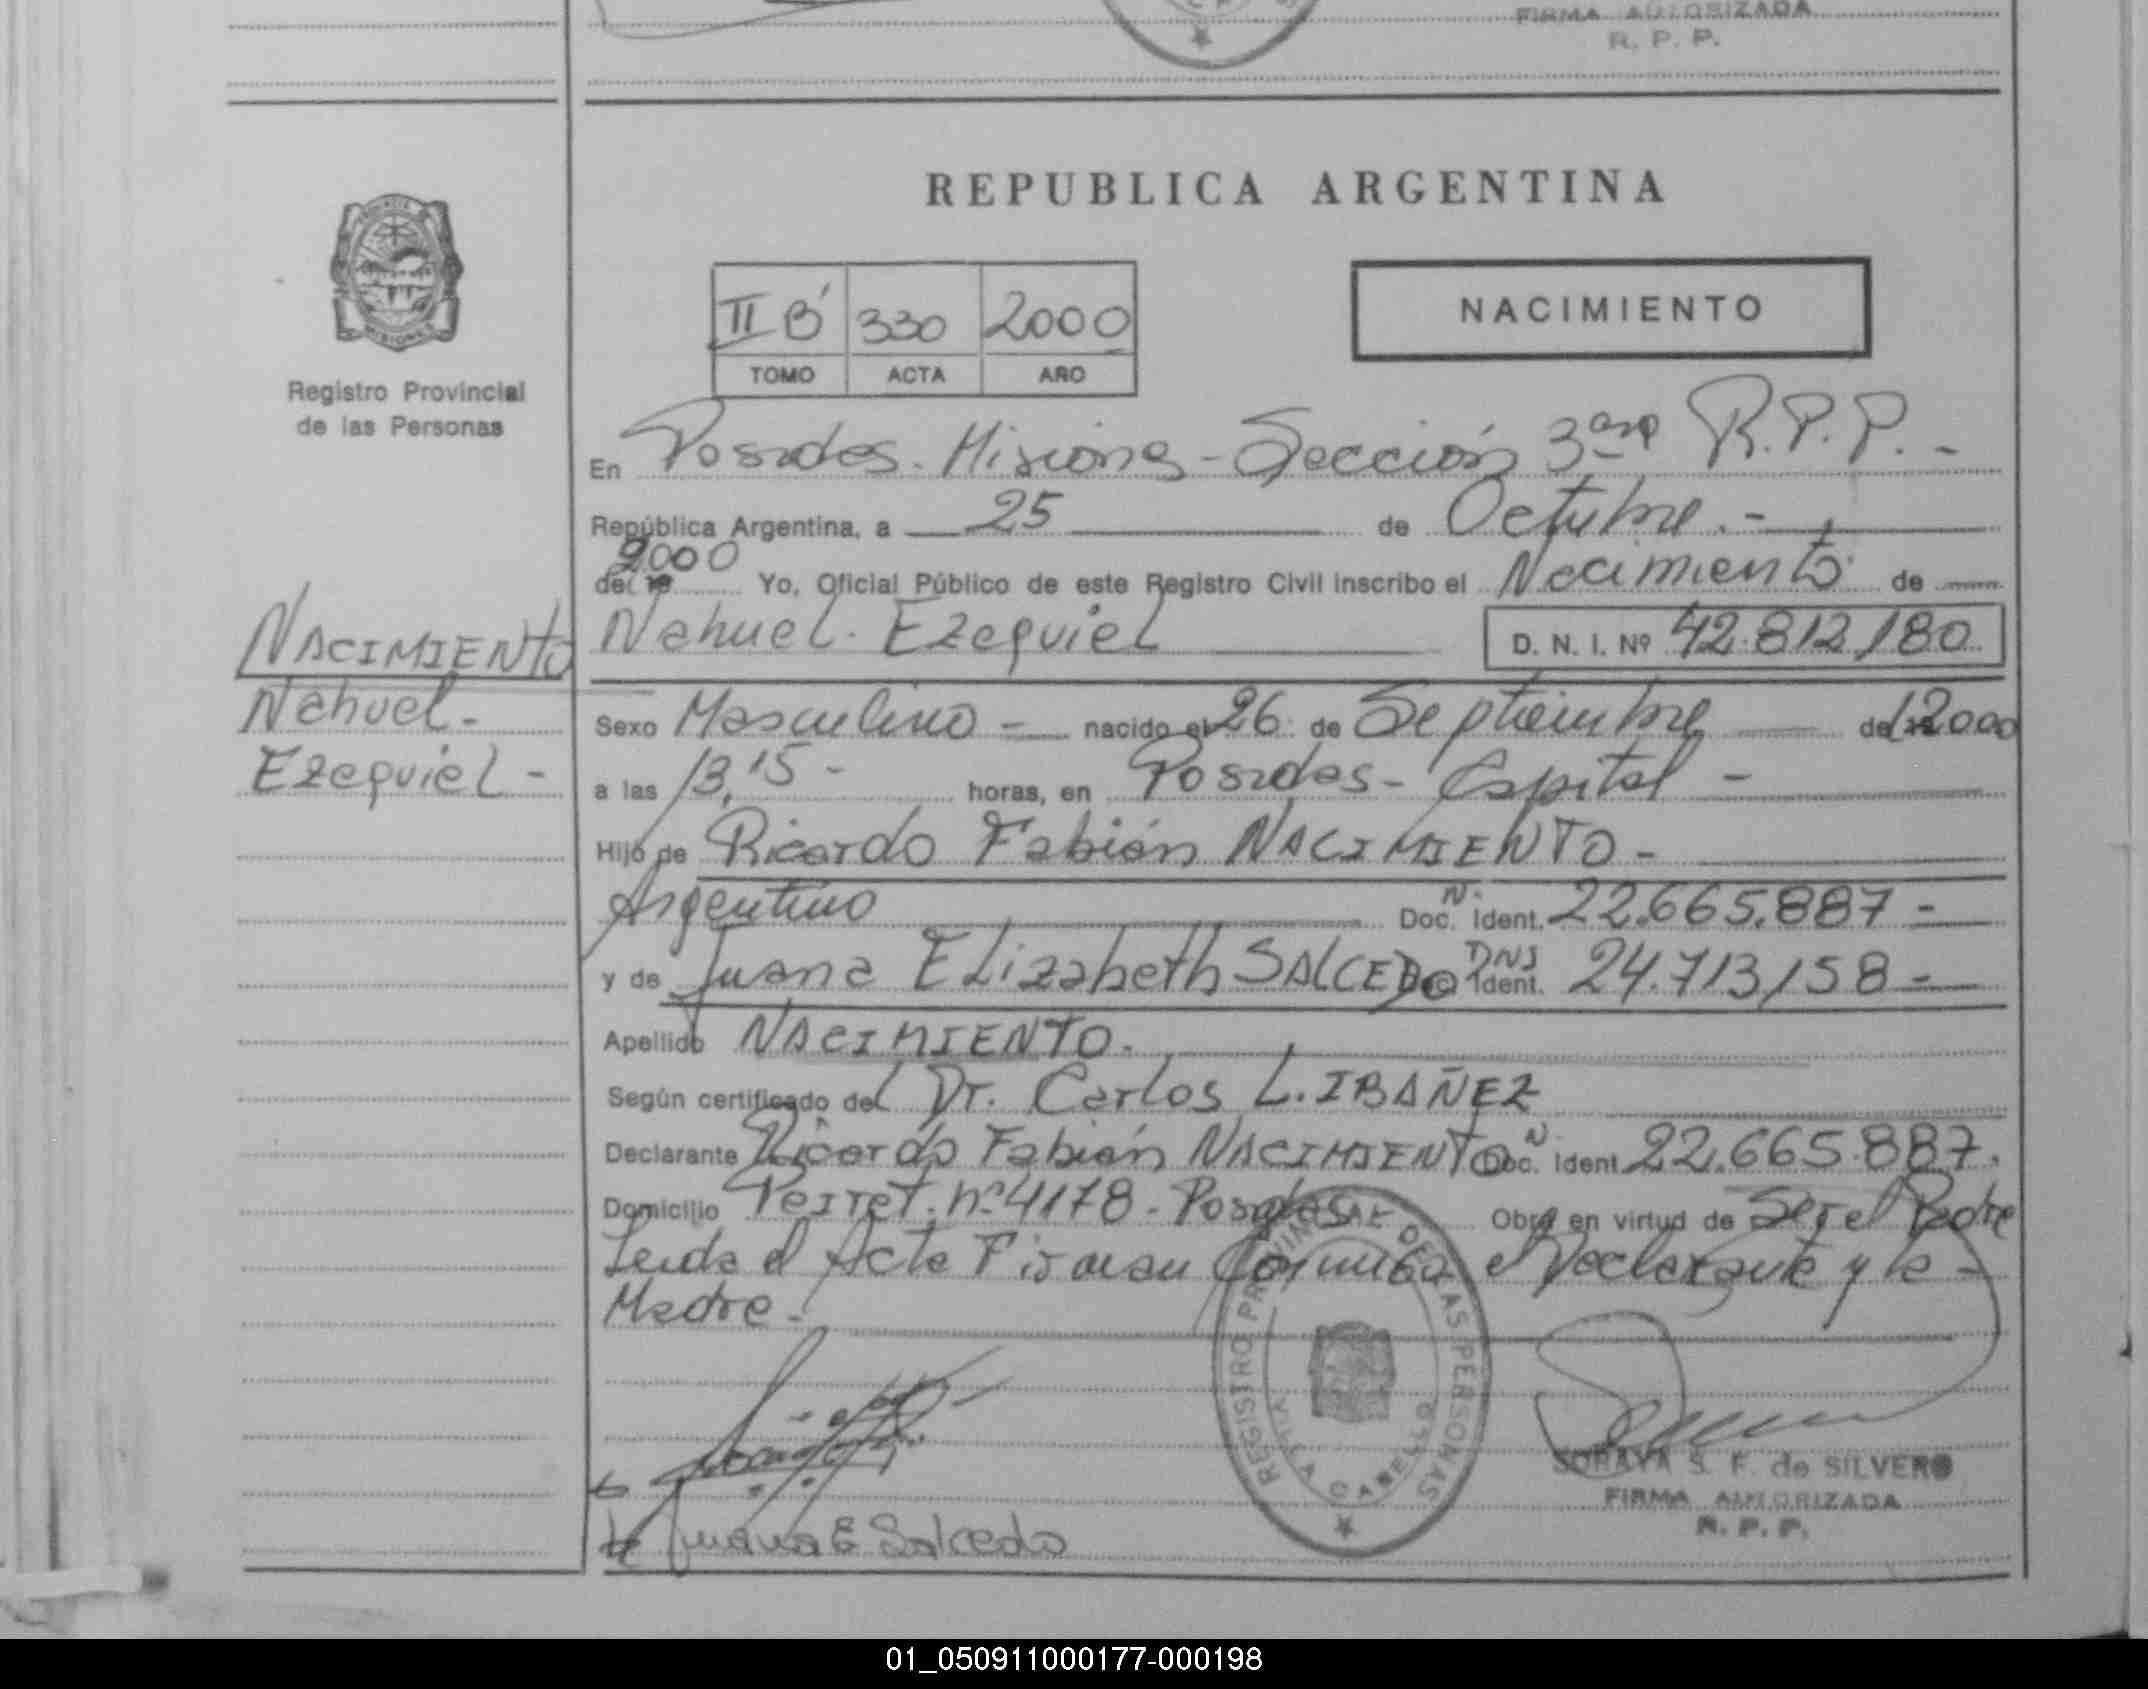 FIRMA AUTORIZADA
R. P. P.
REPUBLICA ARGENTINA
II B' 330 2000
TOMO ACTA AÑO
NACIMIENTO
Registro Provincial
de las Personas
En Posadas. Misiones - Sección 3era R.P.P. -
República Argentina, a 25 de Octubre. -
2000
del 19 Yo, Oficial Público de este Registro Civil inscribo el Nacimiento de
Nahuel Ezequiel D. N. I. Nº 42.812.180
NACIMIENTO
Nahuel -
Ezequiel -
Sexo Masculino - nacido el 26 de Septiembre del 2000
a las 13,15 - horas, en Posadas - Capital -
Hijo de Ricardo Fabián NACIMIENTO -
Argentino Doc. Ident. 22.665.887 -
y de Juana Elizabeth SALCEDO DNI Doc. Ident. 24.713.158 -
Apellido NACIMIENTO.
Según certificado del Dr. Carlos L. IBAÑEZ
Declarante Ricardo Fabián NACIMIENTO Doc. Ident. 22.665.887.
Domicilio Perret. nº 4178 - Posadas Obra en virtud de Ser el Padre
Leida el Acta Firman Conmigo el Declarante y la -
Madre -
REGISTRO PROVINCIAL DE LAS PERSONAS
VILLA CABELLO
Juana E Salcedo
SORAYA S. F. de SILVERO
FIRMA AUTORIZADA
R. P. P.
01_050911000177-000198